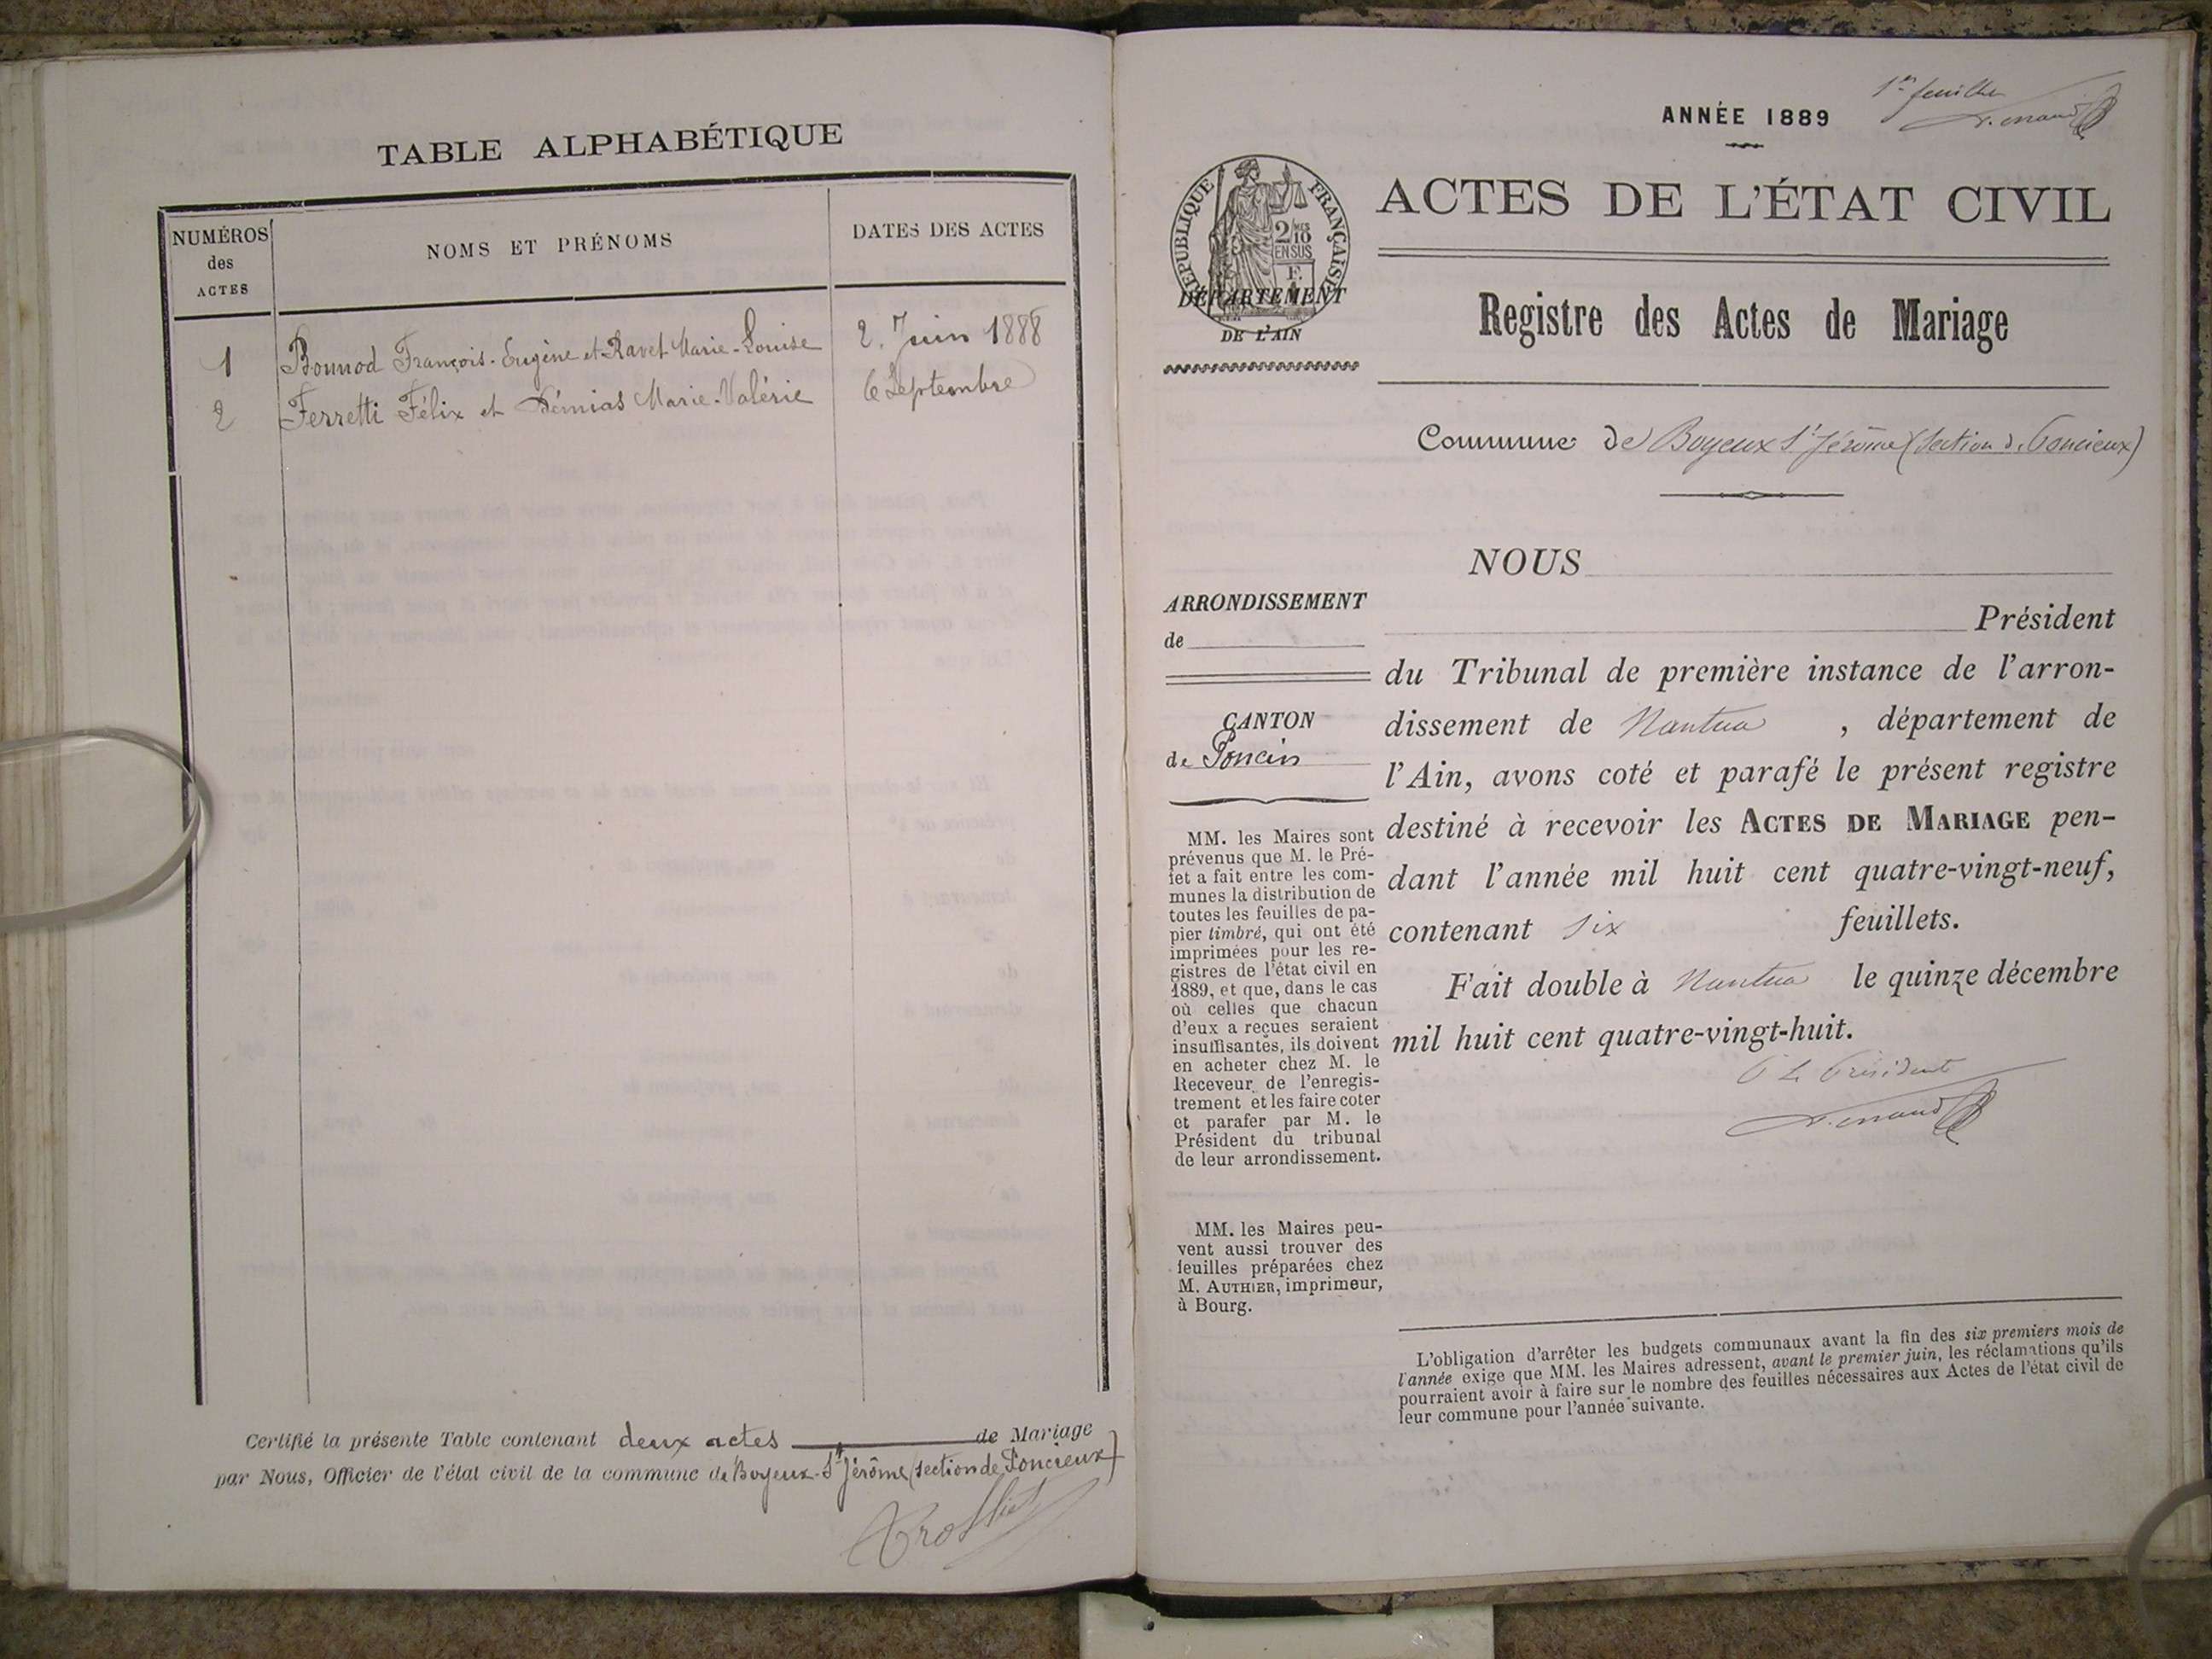 TABLE ALPHABÉTIQUE
NUMÉROS
des
ACTES
NOMS ET PRÉNOMS
DATES DES ACTES
1 Bonnod François-Eugène et Ravet Marie-Louise 2. Juin 1888
2 Ferretti Félix et Démias Marie-Valérie 6 Septembre
Certifié la présente Table contenant deux actes de Mariage
par Nous, Officier de l'état civil de la commune de Boyeux-St Jérôme (section de Poncieux)
1er feuillet
ANNÉE 1889
RÉPUBLIQUE FRANÇAISE
2/10 mes
EN SUS
DÉPARTEMENT
DE L'AIN
ACTES DE L'ÉTAT CIVIL
Registre des Actes de Mariage
Commune de Boyeux St Jérôme (Section de Poncieux)
ARRONDISSEMENT
de
CANTON
de Poncin
MM. les Maires sont
prévenus que M. le Pré-
fet a fait entre les com-
munes la distribution de
toutes les feuilles de pa-
pier timbré, qui ont été
imprimées pour les re-
gistres de l'état civil en
1889, et que, dans le cas
où celles que chacun
d'eux a reçues seraient
insuffisantes, ils doivent
en acheter chez M. le
Receveur de l'enregis-
trement et les faire coter
et parafer par M. le
Président du tribunal
de leur arrondissement.
MM. les Maires peu-
vent aussi trouver des
feuilles préparées chez
M. AUTHIER, imprimeur,
à Bourg.
NOUS
Président
du Tribunal de première instance de l'arron-
dissement de Nantua , département de
l'Ain, avons coté et parafé le présent registre
destiné à recevoir les ACTES DE MARIAGE pen-
dant l'année mil huit cent quatre-vingt-neuf,
contenant six feuillets.
Fait double à Nantua le quinze décembre
mil huit cent quatre-vingt-huit.
P Le Président
L'obligation d'arrêter les budgets communaux avant la fin des six premiers mois de
l'année exige que MM. les Maires adressent, avant le premier juin, les réclamations qu'ils
pourraient avoir à faire sur le nombre des feuilles nécessaires aux Actes de l'état civil de
leur commune pour l'année suivante.